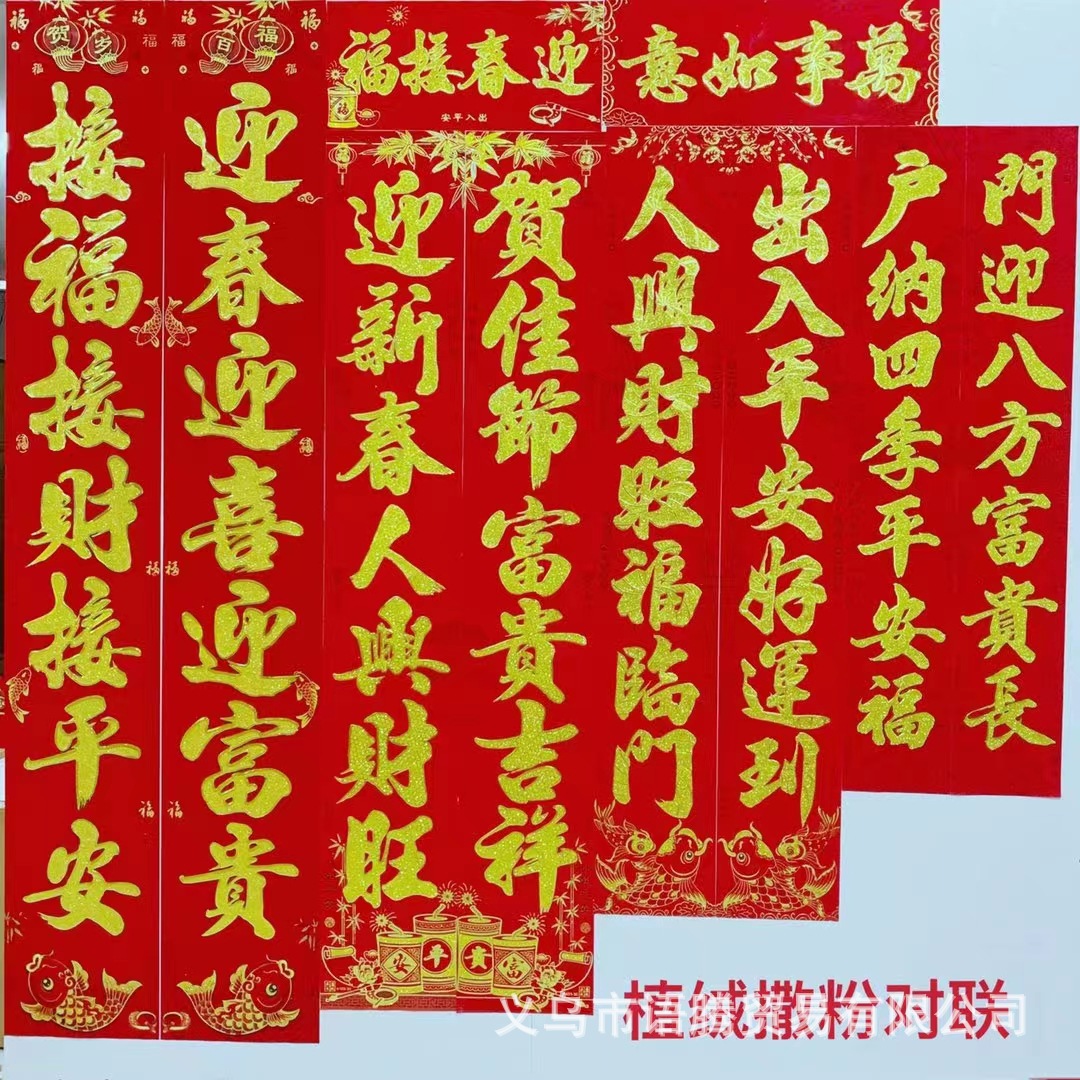 萬事如意
迎春接福
出入平安
門迎八方富貴長
户納四季平安福
出入平安好運到
人興財旺福臨門
賀佳節富貴吉祥
迎新春人興財旺
富貴平安
百福
迎春迎喜迎富貴
贺岁
接福接財接平安
福
植绒撒粉对联